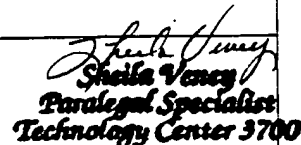 Sheila Veney
Sheila Veney
Paralegal Specialist
Technology Center 3700